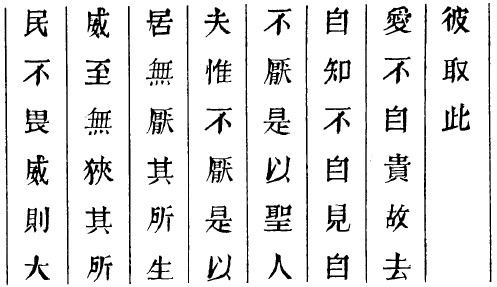 民不畏威則大
威至無狹其所
居無厭其所生
夫惟不厭是以
不厭是以聖人
自知不自見自
愛不自貴故去
彼取此